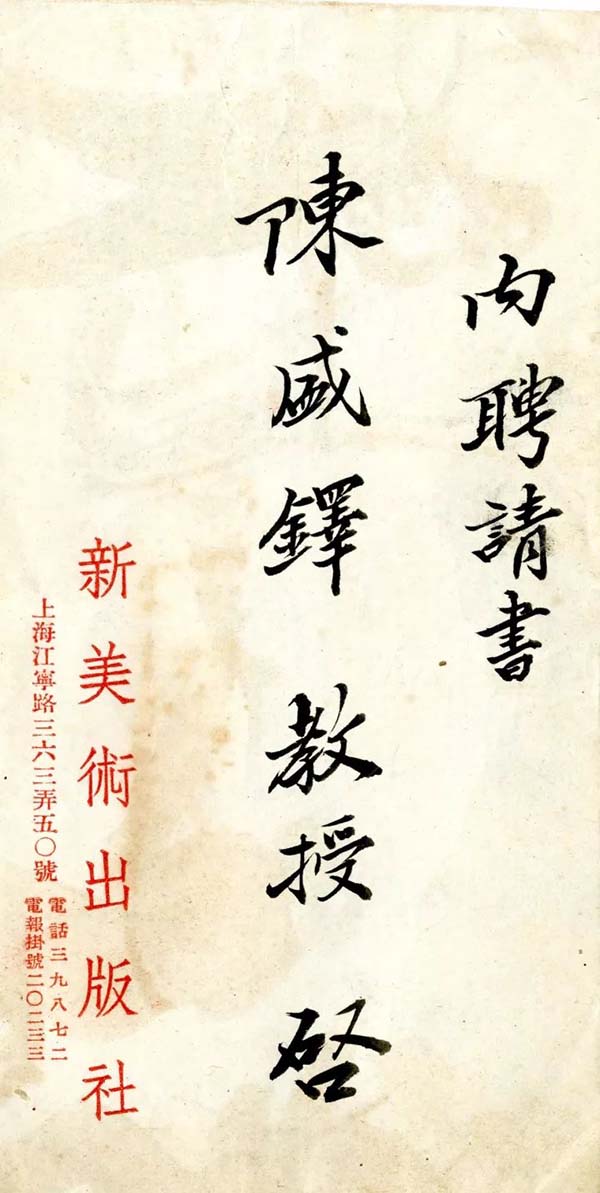 內聘請書
陳盛鐸 教授 啓
新美術出版社
上海江寧路三六三弄五〇號
電話三九八七二
電報掛號二〇二三三